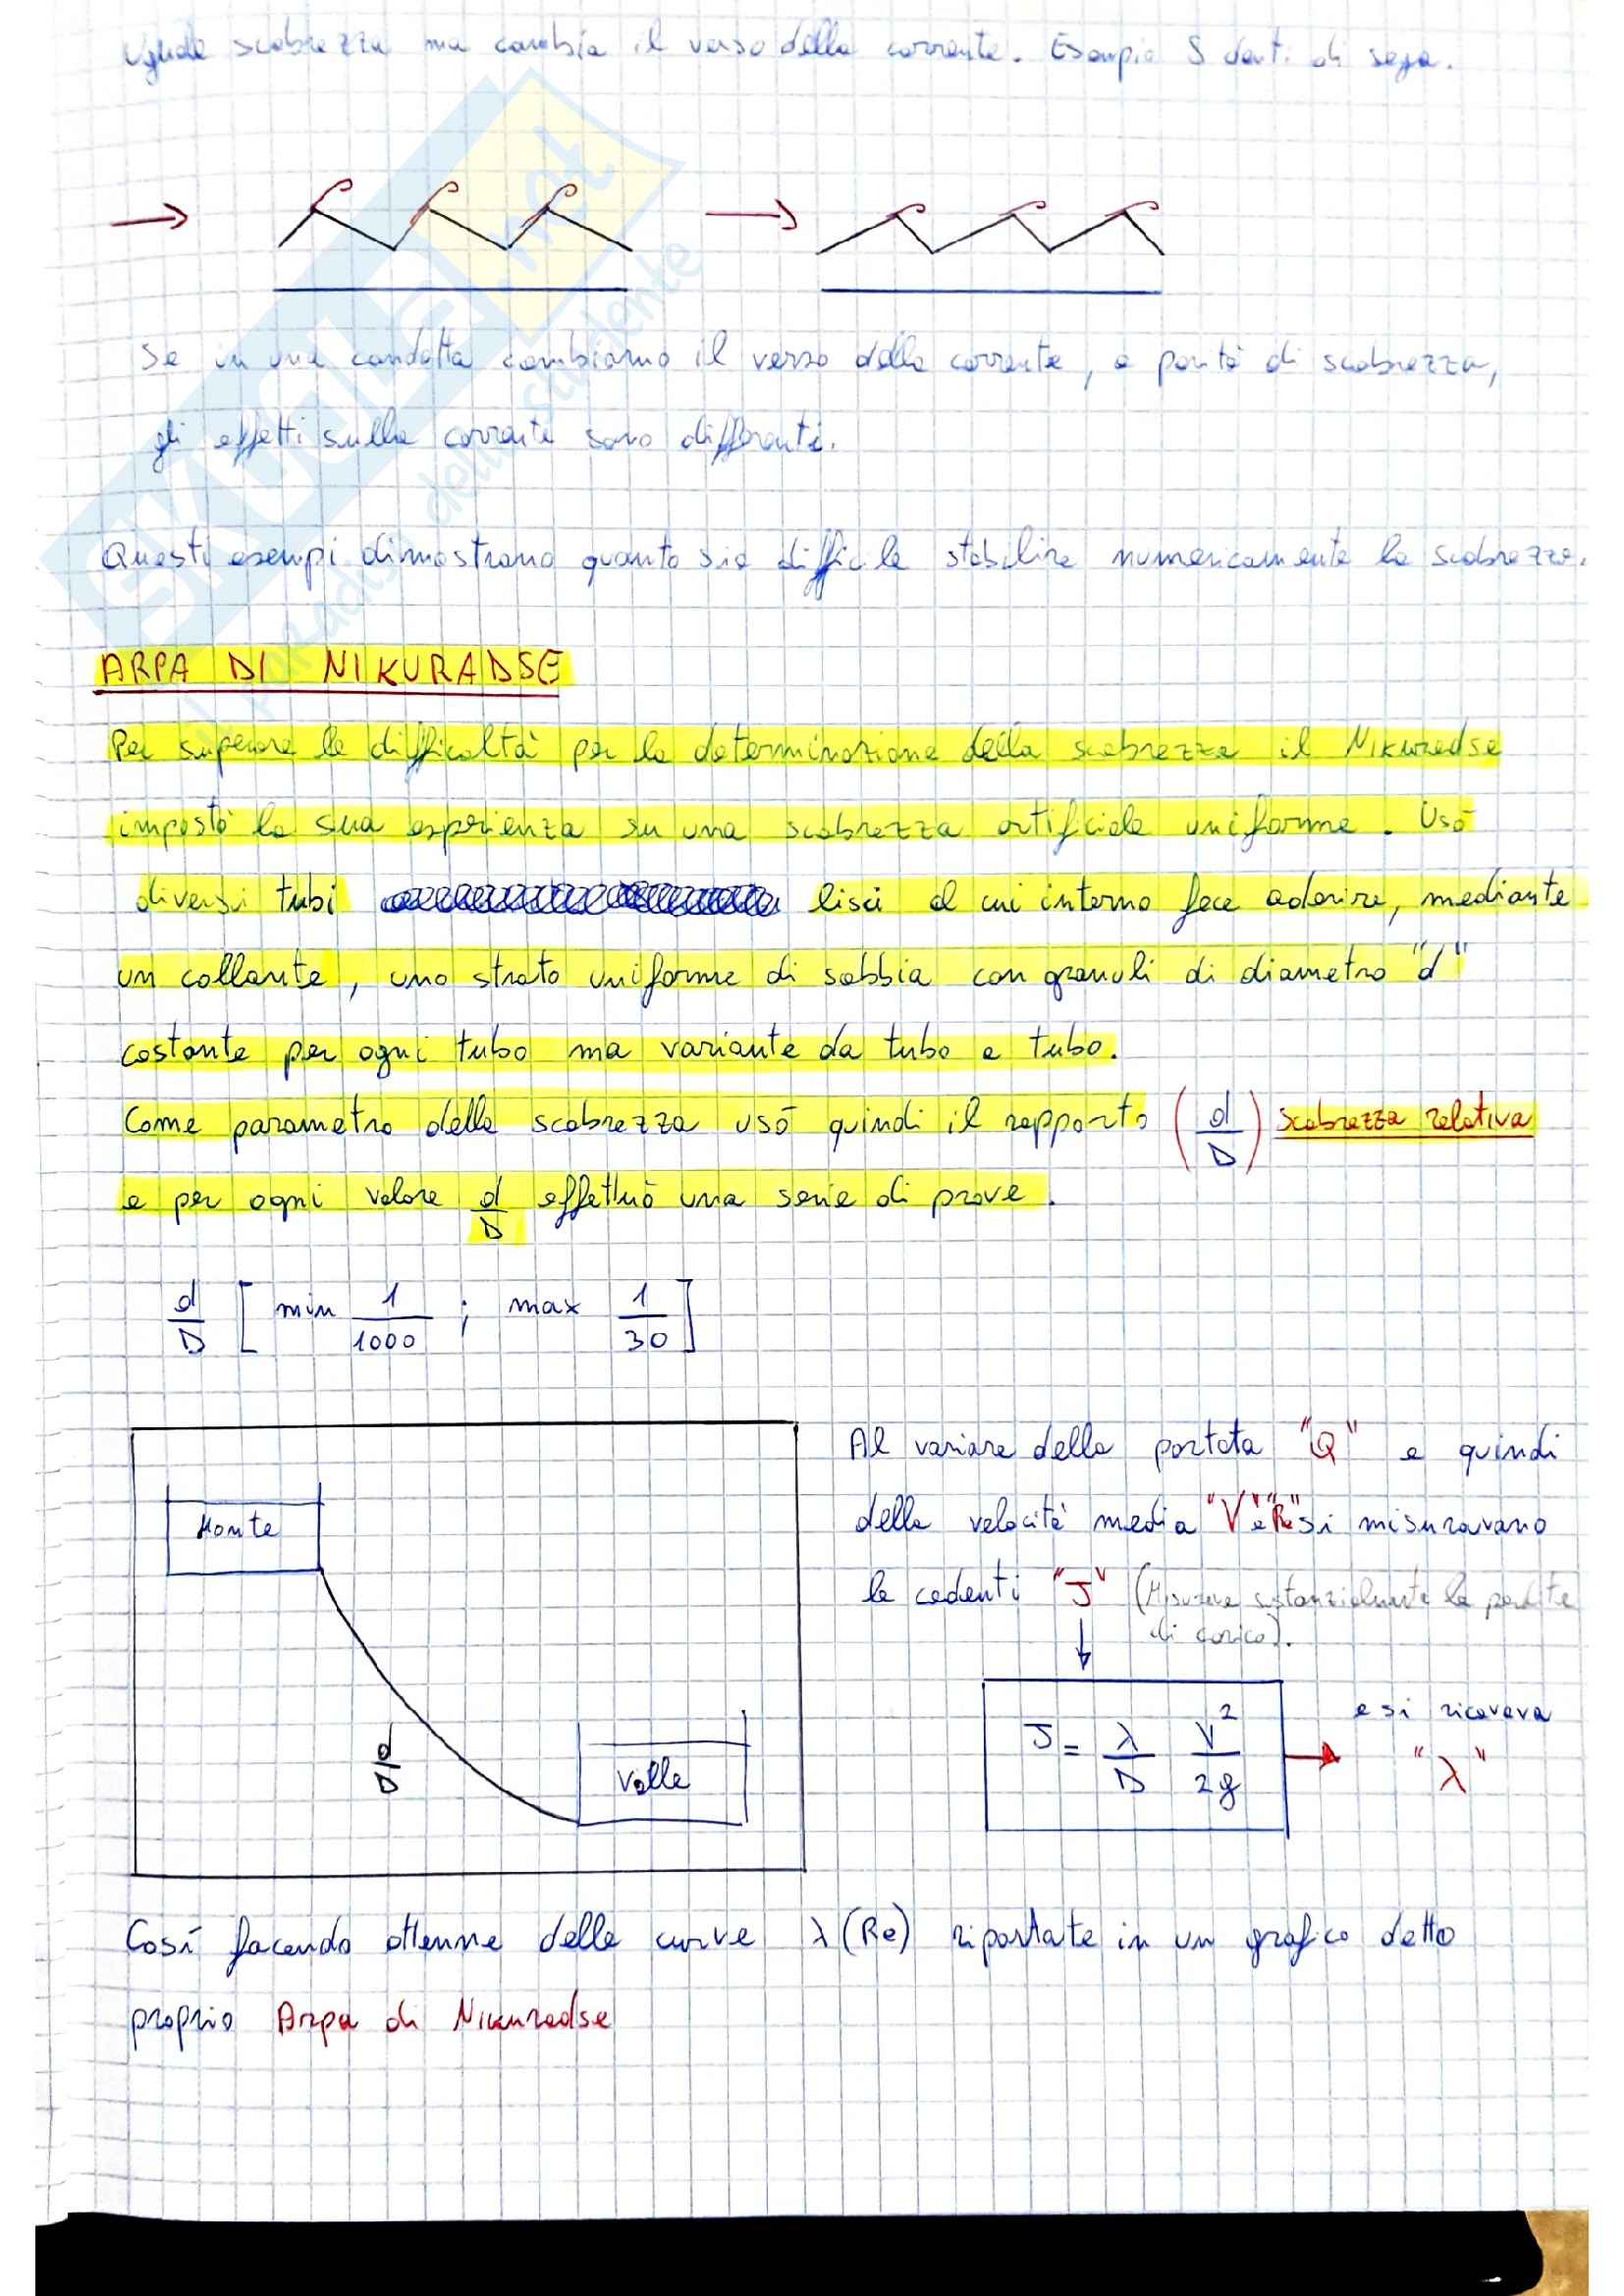 Uguale scabrezza ma cambia il verso della corrente. Esempio 5 denti di sega.
Se in una condotta cambiamo il verso della corrente, a parità di scabrezza,
gli effetti sulla corrente sono differenti.
Questi esempi dimostrano quanto sia difficile stabilire numericamente la scabrezza.
ARPA DI NIKURADSE
Per superare le difficoltà per la determinazione della scabrezza il Nikuradse
impostò la sua esperienza su una scabrezza artificiale uniforme. Usò
diversi tubi lisci al cui interno fece aderire, mediante
un collante, uno strato uniforme di sabbia con granuli di diametro "d"
costante per ogni tubo ma variante da tubo a tubo.
Come parametro della scabrezza usò quindi il rapporto (d/D) scabrezza relativa
e per ogni valore d/D effettuò una serie di prove.
d/D [min 1/1000 ; max 1/30]
Monte
d/D
Valle
Al variare della portata "Q" e quindi
della velocità media "V" e "Re" si misuravano
le cadenti "J" (Misurare sostanzialmente le perdite
di carico).
J = λ/D V²/2g
e si ricavava
"λ"
Così facendo ottenne delle curve λ(Re) riportate in un grafico detto
proprio Arpa di Nikuradse
SKUOLA.net
il paradiso dello studente